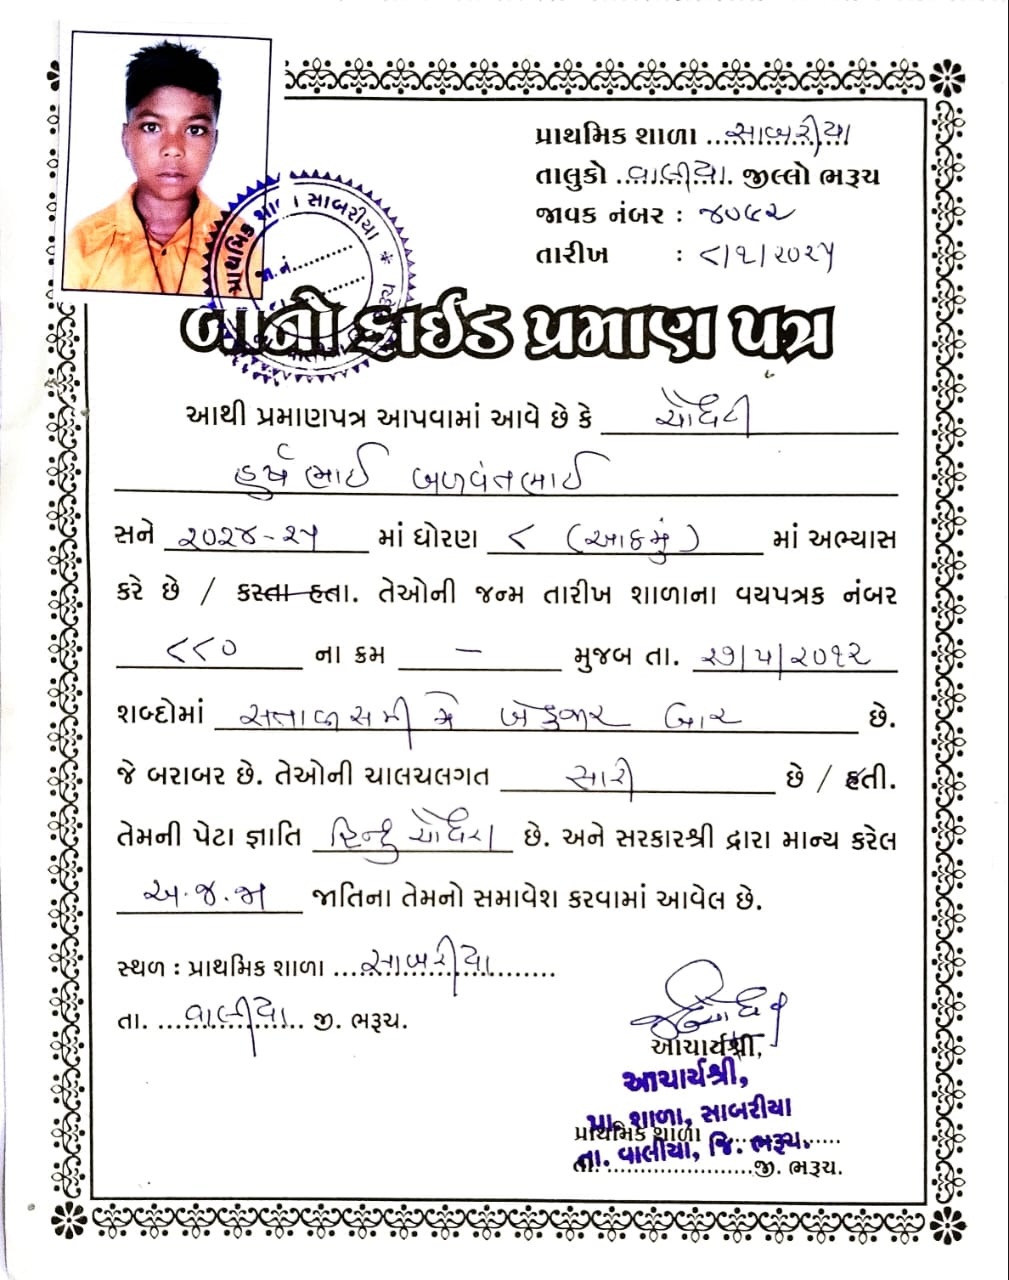 પ્રાથમિક શાળા ...સાબરીયા
તાલુકો ..વાલીયા.. જીલ્લો ભરૂચ
જાવક નંબર : ૪૦૯૨
તારીખ : ૮/૧/૨૦૨૫
પ્રાથમિક શાળા સાબરીયા *
જા. નં...............
બોનો ફાઈડ પ્રમાણ પત્ર
આથી પ્રમાણપત્ર આપવામાં આવે છે કે ચૌધરી
હર્ષભાઈ બળવંતભાઈ
સને ૨૦૨૪-૨૫ માં ધોરણ ૮ (આઠમું) માં અભ્યાસ
કરે છે / કરતા હતા. તેઓની જન્મ તારીખ શાળાના વયપત્રક નંબર
૮૮૦ ના ક્રમ - મુજબ તા. ૨૭/૫/૨૦૧૨
શબ્દોમાં સત્તાવીસમી મે બે હજાર બાર છે.
જે બરાબર છે. તેઓની ચાલચલગત સારી છે / હતી.
તેમની પેટા જ્ઞાતિ હિન્દુ ચૌધરી છે. અને સરકારશ્રી દ્વારા માન્ય કરેલ
અ.જ.જા જાતિના તેમનો સમાવેશ કરવામાં આવેલ છે.
સ્થળ : પ્રાથમિક શાળા ...સાબરીયા..........
તા. ...વાલીયા... જી. ભરૂચ.
આચાર્યશ્રી,
આચાર્યશ્રી,
પ્રા. શાળા, સાબરીયા
પ્રાથમિક શાળા ....................
તા. વાલીયા, જિ. ભરૂચ.
તા. ........................જી. ભરૂચ.